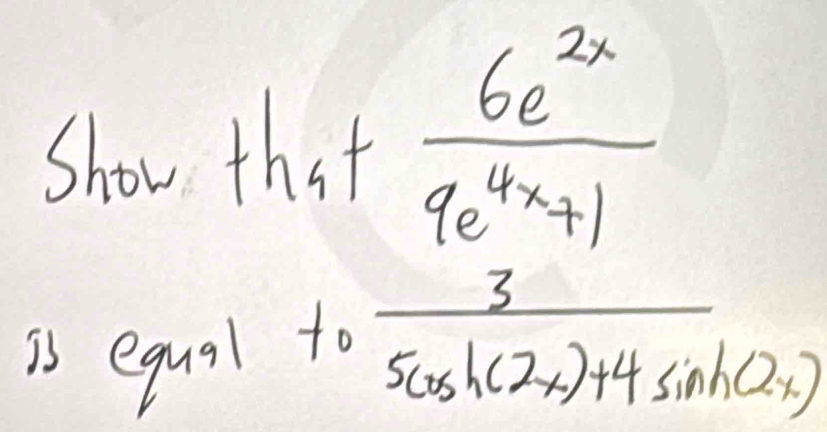 Show that \frac{6e^{2x}}{9e^{4x}+1}
is equal to \frac{3}{5cosh(2x)+4sinh(2x)}